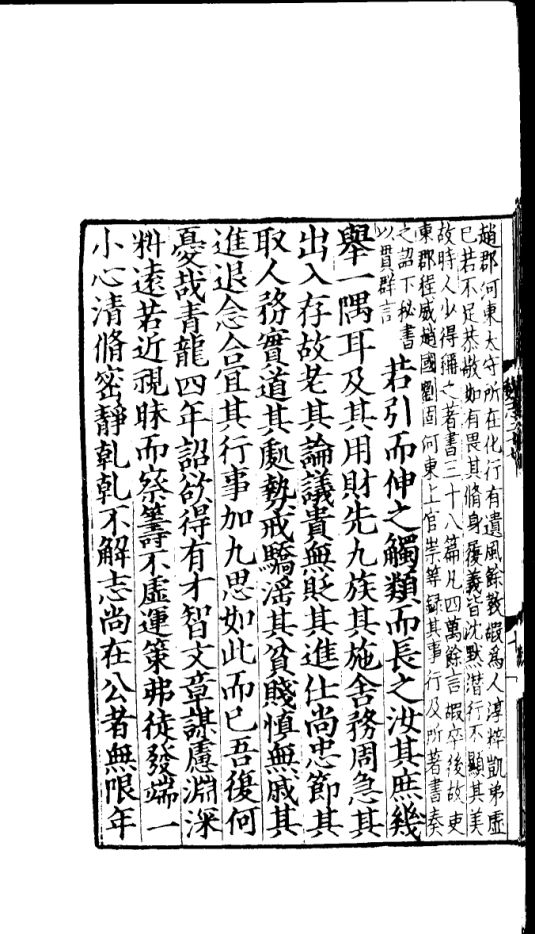 趙郡河東太守所在化行有遺風餘教嘏爲人淳粹凱弟虛
已若不足恭敬如有畏其脩身履義皆沈默潛行不顯其美
故時人少得稱之著書三十八篇凡四萬餘言嘏卒後故吏
東郡程威趙國劉固河東上官崇等録其事行及所著書奏
之詔下秘書
以貫群言
若引而伸之觸類而長之汝其庶幾
舉一隅耳及其用財先九族其施舍務周急其
出入存故老其論議貴無貶其進仕尚忠節其
取人務實道其處勢戒驕滛其貧賤慎無戚其
進退念合宜其行事加九思如此而已吾復何
憂哉青龍四年詔欲得有才智文章謀慮淵深
料遠若近視昧而察籌不虛運策弗徒發端一
小心清脩密靜乹乹不解志尚在公者無限年